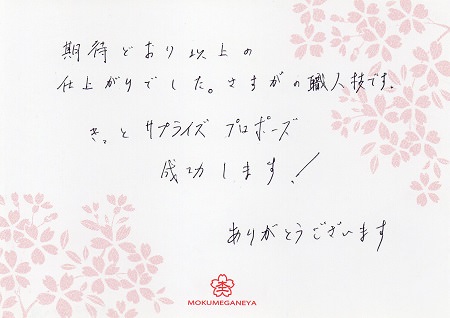 期待どおり以上の
仕上がりでした。さすがの職人技です。
きっとサプライズ プロポーズ
成功します！
ありがとうございます
杢
MOKUMEGANEYA